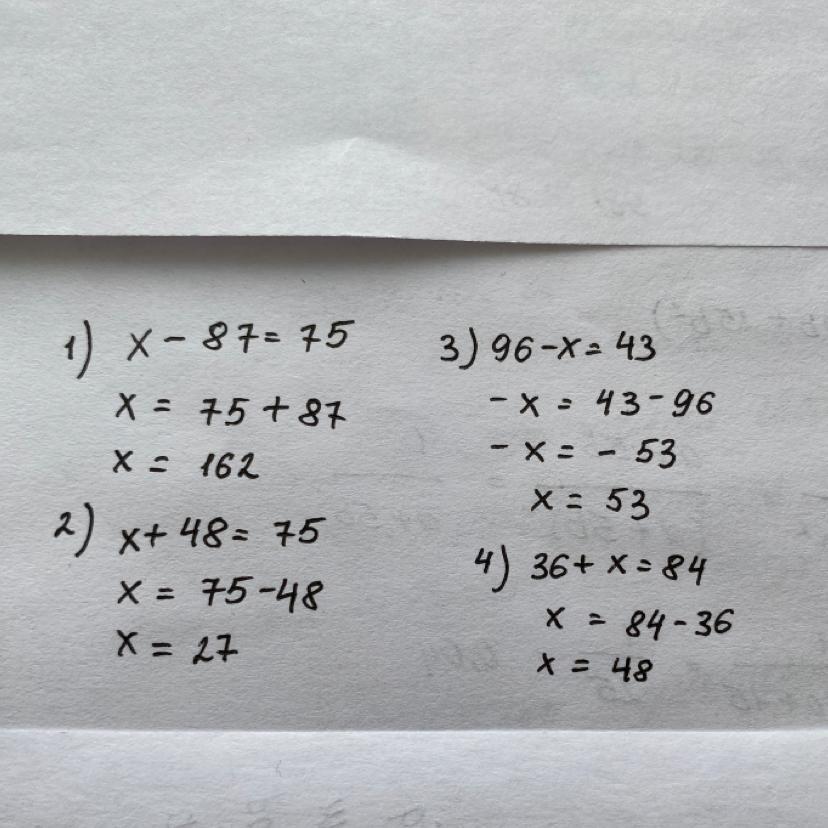 1) x - 87 = 75
x = 75 + 87
x = 162
2) x + 48 = 75
x = 75 - 48
x = 27
3) 96 - x = 43
- x = 43 - 96
- x = - 53
x = 53
4) 36 + x = 84
x = 84 - 36
x = 48